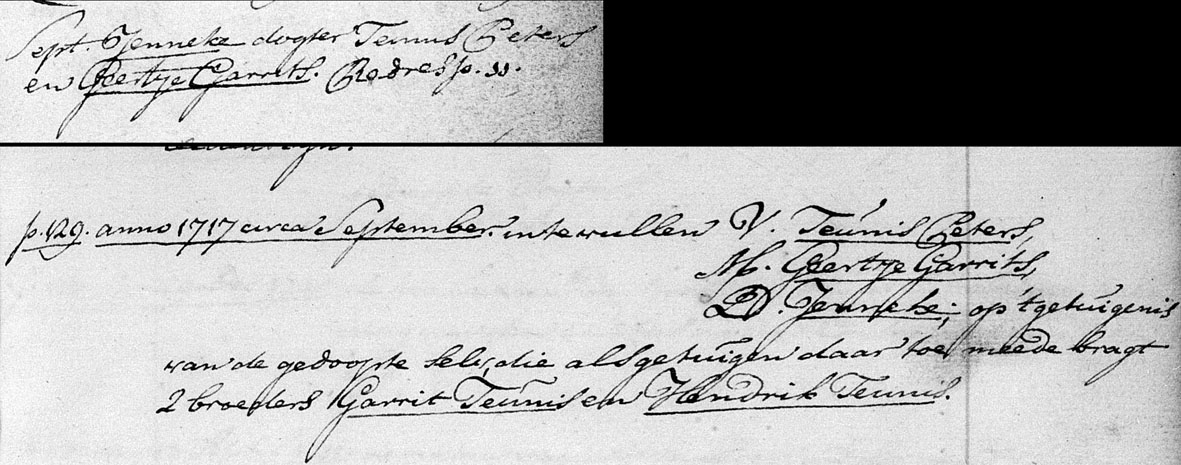 Sept. Jenneke dogter Teunis Peters
en Geertje Garrits. Redres p. 11.
p. 129. anno 1717 circa September. in te vullen V. Teúnis Peters,
M. Geertje Garrits,
D. Jenneke; op 't getuigenis
van de gedoopte selv, die als getuigen daar toe meede bragt
2 broeders Garrit Teúnis en Hendrik Teunis.